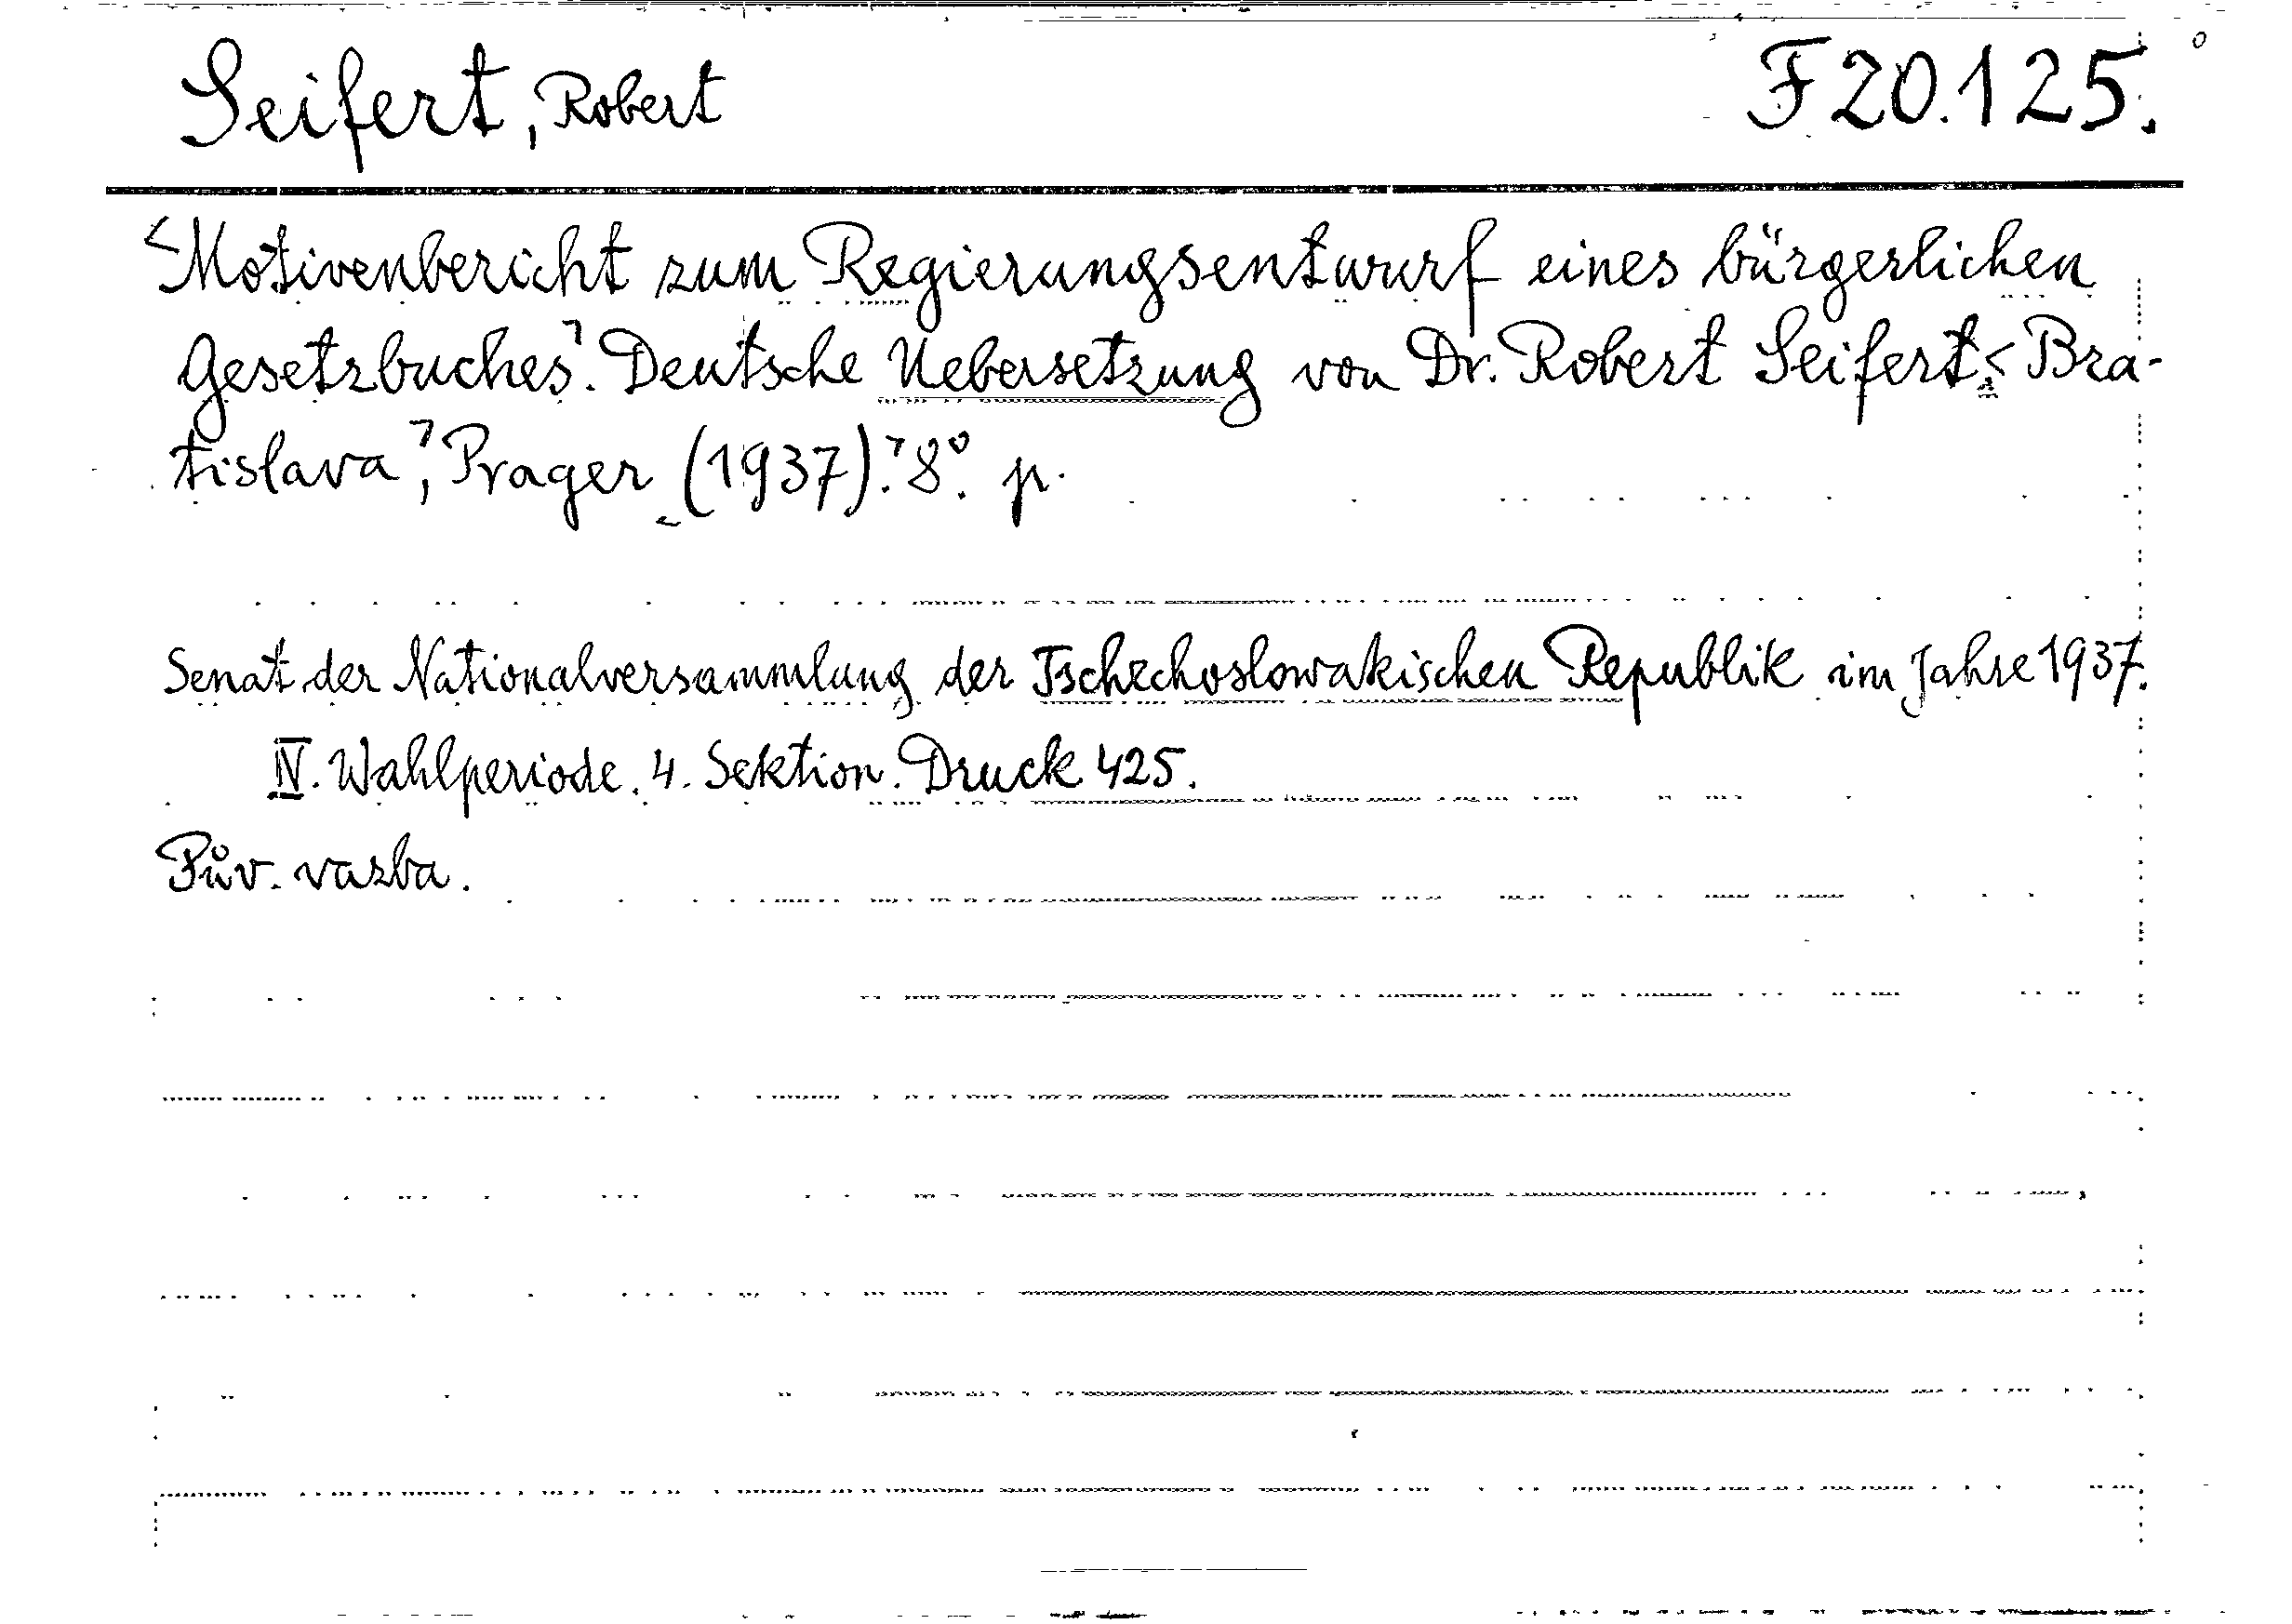 Seifert, Robert F 20.125.
<Motivenbericht zum Regierungsentwurf eines bürgerlichen
Gesetzbuches>. Deutsche Uebersetzung von Dr. Robert Seifert. <Bra-
tislava>, Prager <(1937).> 8°. p.
Senat der Nationalversammlung der Tschechoslowakischen Republik im Jahre 1937.
IV. Wahlperiode. 4. Sektion. Druck 425.
Pův. vazba.